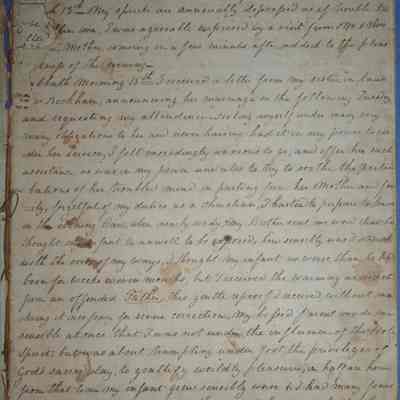 13th My spirits are unusually depressed as if trouble
was near, I was agreeably surprised by a visit from Mr &
Mother, coming in a few minutes after added to the pleas
ures of the evening.
Sabbath Morning 15th I received a letter from my sister in law
announcing her marriage on the following Tuesday
and requesting my attendance. Feeling myself under many very
many obligations to her and never having had it in my power to ren
der her service, I felt exceedingly anxious to go, and offer her such
assistance as was in my power and also to try to soothe the
bations of her troubled mind in parting from her Mother and fam
ily, forgetful of my duties as a Christian, I hasted to prepare to leave
in the evening Cars, when nearly ready my Brother sent me word that he
thought infant to unwell to be exposed, how sensibly was I struck
with the error of my ways, I thought my infant no worse than he had
been for weeks or even months, but I received the warning as direct
from an offended Father, this gentle reproof I received without mur
as from some correction. My beloved friend made me
sensible at once that I was not under the influence of the Holy
Spirit but was about trampling under foot the privileges of
God's sacred day, to gratify worldly pleasure, in half an hour
from that time my infant grew sensibly worse & had many